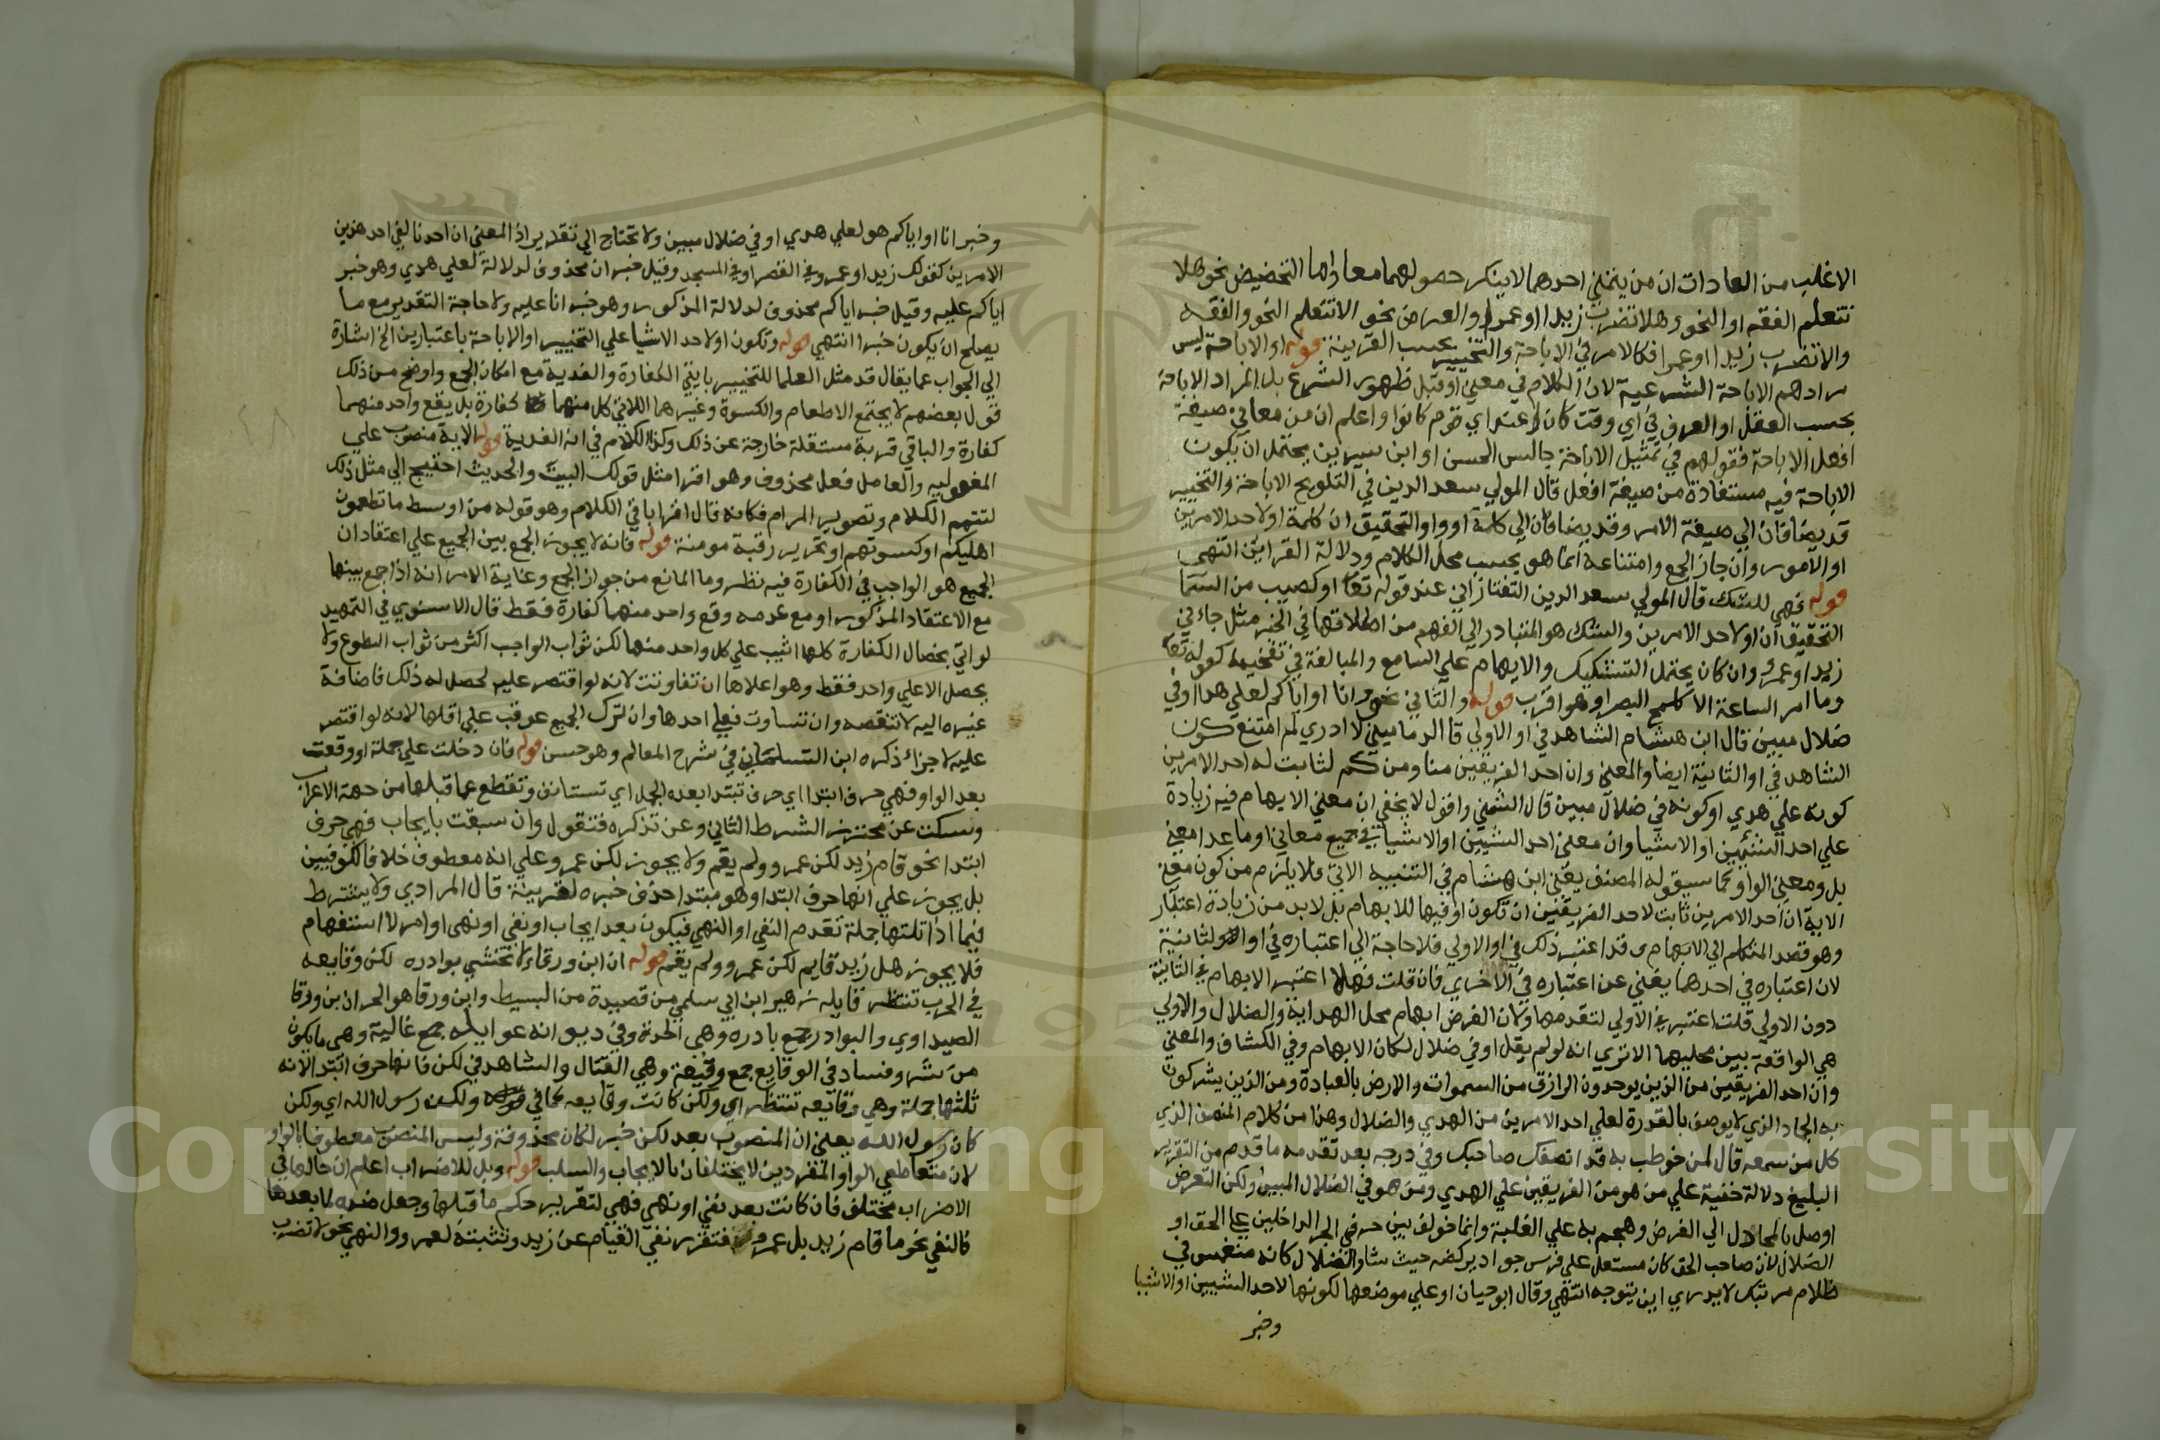 الاغلب من العادات ان من يتمني احدهما لا ينكر حصولهما معا واما التحضيض نحو هلا
تتعلم الفقه او النحو وهلا تضرب زيدا او عمرا والعرض نحو الا تتعلم النحو والفقه
والا تضرب زيدا او عمرا فكالامر في الاباحة والتخيير بحسب القرينة قوله او الاباحة ليس
مرادهم الاباحة الشرعية لان الكلام في معني او قبل ظهور الشرع بل المراد الاباحة
بحسب العقل او العرف في اي وقت كان وعند اي قوم كانوا واعلم ان من معاني صيغة
افعل الاباحة فقولهم في تمثيل الاباحة جالس الحسن او ابن سيرين يحتمل ان يكون
الاباحة فيه مستفادة من صيغة افعل قال المولي سعد الدين في التلويح الاباحة والتخيير
قد يضافان الي صيغة الامر وقد يضافان الي كلمة او والتحقيق ان كلمة او لاحد الامرين
او الامور وان جاز الجمع وامتناعه انما هو بحسب محل الكلام ودلالة القراين انتهي
قوله فهي للشك قال المولي سعد الدين التفتازاني عند قوله تعا او كصيب من السما
التحقيق ان او لاحد الامرين والشك هو المتبادر الي الفهم من اطلاقها في الخبر مثل جاءني
زيد او عمرو وان كان يحتمل التشكيك والايهام علي السامع والمبالغة في تفخيمه كقوله تعا
وما امر الساعة الا كلمح البصر او هو اقرب قوله والثاني نحو وانا او اياكم لعلي هدا او في
ضلال مبين قال ابن هشام الشاهد في او الاولي قا الدماميني لا ادري لم امتنع كون
الشاهد في او الثانية ايضا والمعني وان احد الفريقين منا ومنكم لثابت له احد الامرين
كونه علي هدي او كونه في ضلال مبين قال الشمني واقول لا يخفي ان معني الابهام فيه زيادة
علي احد الشيئين او الاشيا وان معني احد الشيين او الاشيا في جميع معاني او ما عدا معني
بل ومعني الواو كما سيقوله المصنف يعني ابن هشام في التنبيه الاتي فلا يلزم من كون معني
الاية ان احد الامرين ثابت لاحد الفريقين ان تكون او فيها للابهام بل لا بد من زيادة اعتبار
وهو قصد المتكلم الي الابهام وقد اعتبر ذلك في او الاولي فلا حاجة الي اعتباره في او الثانية
لان اعتباره في احدهما يغني عن اعتباره في الاخري فان قلت فهلا اعتبر الابهام في الثانية
دون الاولي قلت اعتبر في الاولي لتقدمها وكان الغرض ابهام محل الهداية والضلال والاولي
هي الواقعة بين محليهما الا تري انه لو لم يقل او في ضلال لكان الابهام وفي الكشاف والمعني
وان احد الفريقين من الذين يوحدون الرازق من السموات والارض بالعبادة ومن الذين يشركون
به الجماد الذي لا يوصف بالقدرة لعلي احد الامرين من الهدي والضلال وهذا من كلام المنصف الذي
كل من سمعه قال لمن خوطب به قد انصفك صاحبك وفي درجه بعد تقدمه ما قدم من التقرير
البليغ دلالة خفية علي من هو من الفريقين علي الهدي ومن هو في الضلال المبين ولكن التعريض
اوصل بالمجادل الي الغرض وهجم به علي الغلبة وانما خولف بين حرفي الجر الداخلين علي الحق او
الضلال لان صاحب الحق كان مستعل علي فرس جواد يركضه حيث شا والضلال كانه منغمس في
ظلام مرتبك لا يدري اين يتوجه انتهي وقال ابو حيان او علي موضعها لكونها لاحد الشيين او الاشيا
وخبر
وخبر انا او اياكم هو لعلي هدي او في ضلال مبين ولا تحتاج الي تقدير اذ المعني ان احدنا لفي احد هذين
الامرين كقولك زيد او عمرو في القصر او في المسجد وقيل خبر ان محذوف لدلالة لعلي هدي وهو خبر
اياكم عليه وقيل خبر اياكم محذوف لدلالة المذكور وهو خبر انا عليه ولا حاجة التقدير مع ما
يصلح ان يكون خبرا انتهي قوله وتكون او لاحد الاشيا علي التخيير او الاباحة باعتبارين الخ اشارة
الي الجواب عما يقال قد مثل العلما للتخيير بايتي الكفارة والفدية مع امكان الجمع واوضح من ذلك
قول بعضهم لا يجتمع الاطعام والكسوة وغيرهما اللاتي كل منهما كفارة بل يقع واحد منهما
كفارة والباقي قربة مستقلة خارجة عن ذلك وكذا الكلام في اية الفدية قوله الاية منصوب علي
المفعوليه والعامل فعل محذوف وهو اقرا مثل قولك البيت والحديث احتيج الي مثل ذلك
لتتميم الكلام وتصوير المرام فكانه قال اقرا باقي الكلام وهو قوله من اوسط ما تطعمون
اهليكم او كسوتهم او تحرير رقبة مومنة قوله فانه لا يجوز الجمع بين الجميع علي اعتقاد ان
الجميع هو الواجب في الكفارة فيه نظر وما المانع من جواز الجمع وغاية الامر انه اذا جمع بينها
مع الاعتقاد المذكور او مع عدمه وقع واحد منهما كفارة فقط قال الاسنوي في التمهيد
لو اتي بخصال الكفارة كلها اثيب علي كل واحد منها لكن ثواب الواجب اكثر من ثواب التطوع ولا
يحصل الا علي واحد فقط وهو اعلاها ان تفاوتت لانه لو اقتصر عليه لحصل له ذلك فاضافة
غيره اليه لا تنقصه وان تساوت فعلي احدها وان ترك الجميع عوقب علي اقلها لانه لو اقتصر
عليه لاجزا ذكره ابن التلمساني في شرح المعالم وهو حسن قوله فان دخلت علي جملة او وقعت
بعد الواو فهي حرف ابتدا اي حرف تبتدا بعده الجمل اي تستانف وتقطع عما قبلها من جهة الاعراب
وسكت عن محترز الشرط الثاني وعن تذكره فتقول وان سبقت بايجاب فهي حرف
ابتدا نحو قام زيد لكن عمرو ولم يقم ولا يجوز لكن عمرو علي انه معطوف خلافا للكوفيين
بل يجوز علي انها حرف ابتدا وهو مبتدا حذف خبره لقرينة قال المرادي ولا يشترط
فيما اذا تلتها جملة تقدم النفي او النهي فيكون بعد ايجاب او نفي او نهي او امر لا استفهام
فلا يجوز هل زيد قايم لكن عمرو ولم يقم قوله ان ابن ورقاء لا تخشي بوادره لكن وقايعه
في الحرب تنتظر قايله زهير ابن ابي سلمي من قصيدة من البسيط وابن ورقا هو الحر ان بن ورقا
الصيداوي والبوادر جمع بادره وهي الحدة وفي ديو انه غوايله جمع غائلية وهي ما يكون
من شر وفساد في الوقايع جمع وقيعة وهي القتال والشاهد في لكن فانها حرف ابتدا لانه
ثلثها جملة وهي وقايعه تنتظر اي ولكن كانت وقايعه كما في قوله ولكن رسول الله اي ولكن
كان رسول الله يعلني ان المنصوب بعد لكن خبر لكان محذوفة وليس المنصوب معطوفا بالواو
لان متعاطفي الواو المفردين لا يختلفان بالايجاب والسلب قوله وبل للاضراب اعلم ان حالها في
الاضراب مختلف فان كانت بعد نفي او نهي فهي لتقرير حكم ما قبلها وجعل ضده لما بعدها
فالنفي نحو ما قام زيد بل عمرو فتقرر نفي القيام عن زيد وتثبتة لعمرو والنهي نحو لا تضرب